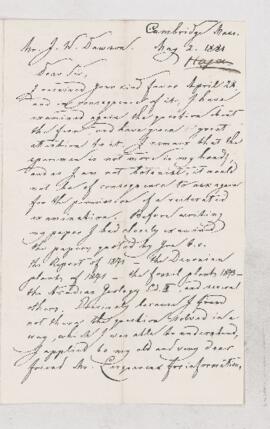 Cambridge Mass.
Mr. J. W. Dawson. May 2. 1881
Dear Sir, Hagen
I received your kind favor April 28
and in consequence of it, I have
examined again the question about
the fern and have given great
attention to it. I remark that the
specimen is not more in my hand,
and as I am not botanist, it would
not be of consequence to ask again
for the permission of a reiterated
examination. Before writing
my paper I had closely examined
the papers quoted by you b. c.
the Report of 1871 — the Devonian
plants of 1871 — the fossil plants 1873 —
the Acadian Geology Ed. II and several
others. Precisely because I
not the question solved in a
way, which I was able to understand,
I applied to my old and very dear
friend Mr. for information,